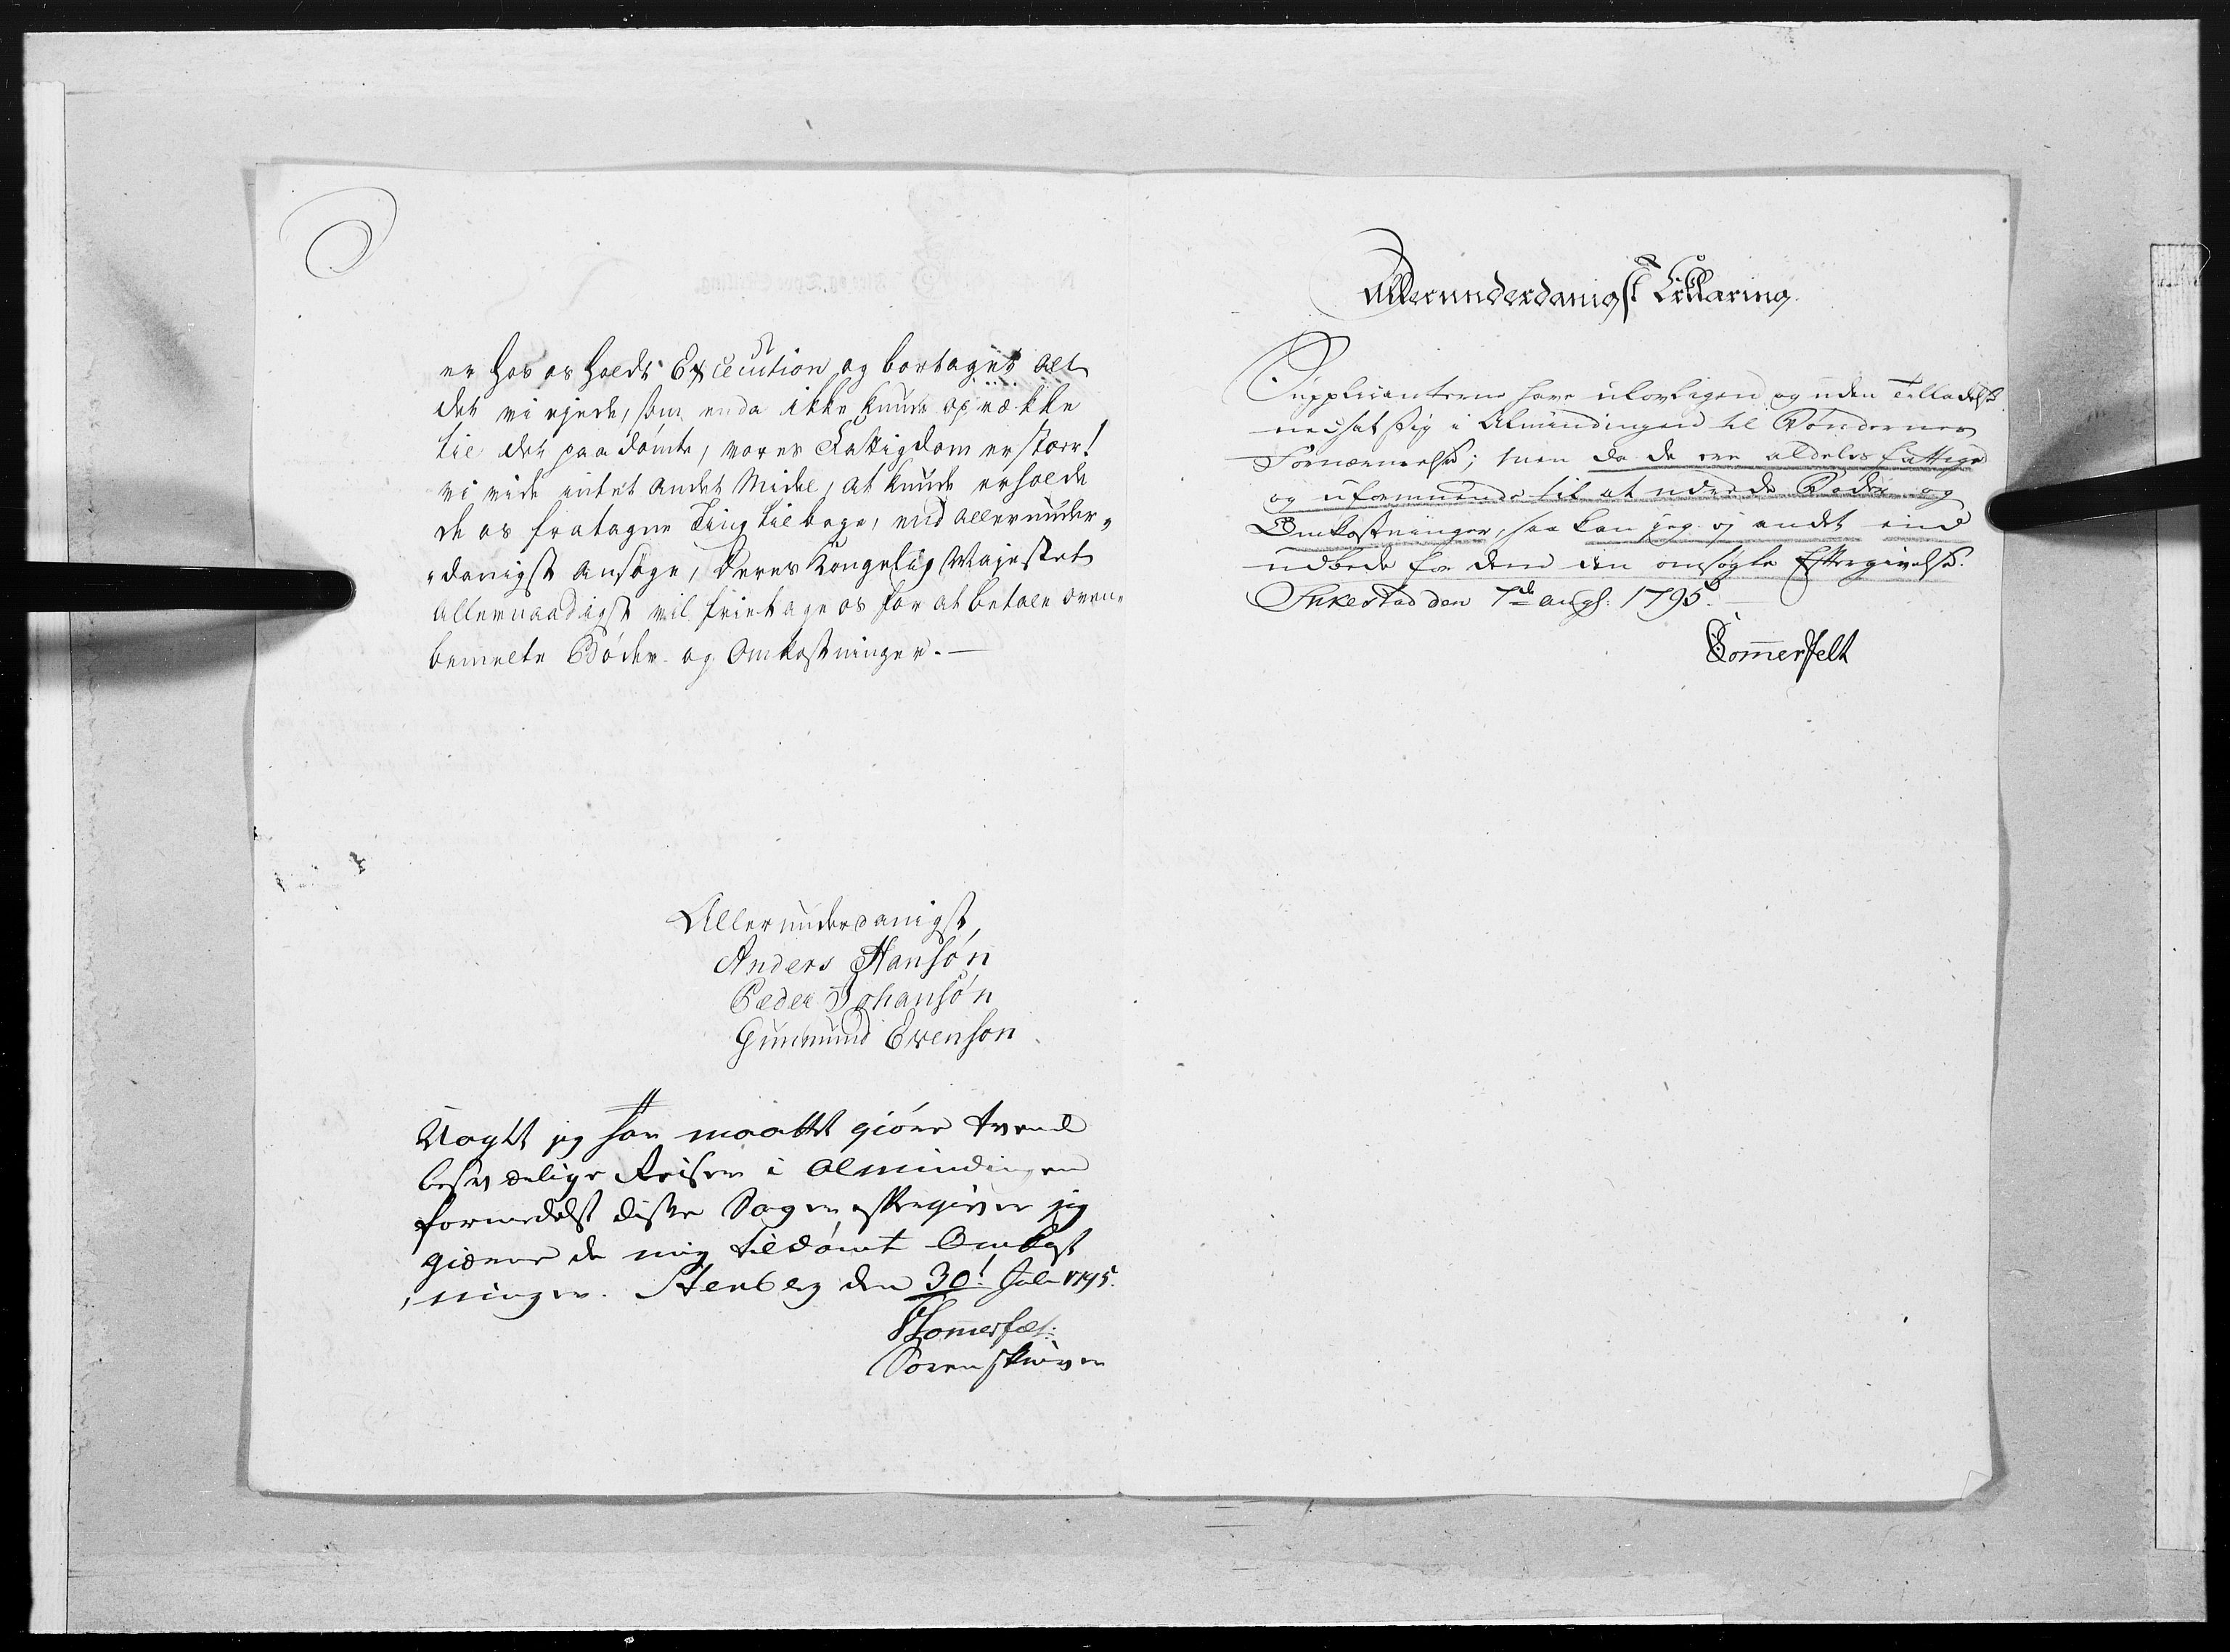 er hos os holdt Execution og bortaget alt
det vi ejede, som enda ikke kunde oprække
til det paadömte, vores Fattigdom er stor!
vi vide intet andet Midel, at kunde erholde
de os fratagne Ting tilbage, end allerunder-
danigst ansøge, Deres Kongelig Majestet
allernaadigst vil fritage os for at betale oven-
bemelte Bøder og Omkostninger. —
Allerunderdanigst
Anders Hansøn
Peder Johansøn
Gunmund Evensøn
Uagtet jeg har maattet giöre tvende
besværlige Reiser i Almindingen
formedelst disse Sager, eftergiver jeg
gierne de mig tildömt Omkost
ninger. Stenberg den 30t Juli 1795.
Sommerfelt
Sorenskriver
Allerunderdanigst Erklæring.
Supplicanterne have ulovligen og uden Tilladelse
nedsat sig i Almindingen til Bøndernes
Fornærmelse; men da de ere aldeles fattige
og uformuende til at udrede Bøder og
Omkostninger, saa kan jeg ej andet end
udbede for dem den ansøgte Eftergivelse.
Sukestad den 7de augs: 1795. —
Sommerfelt